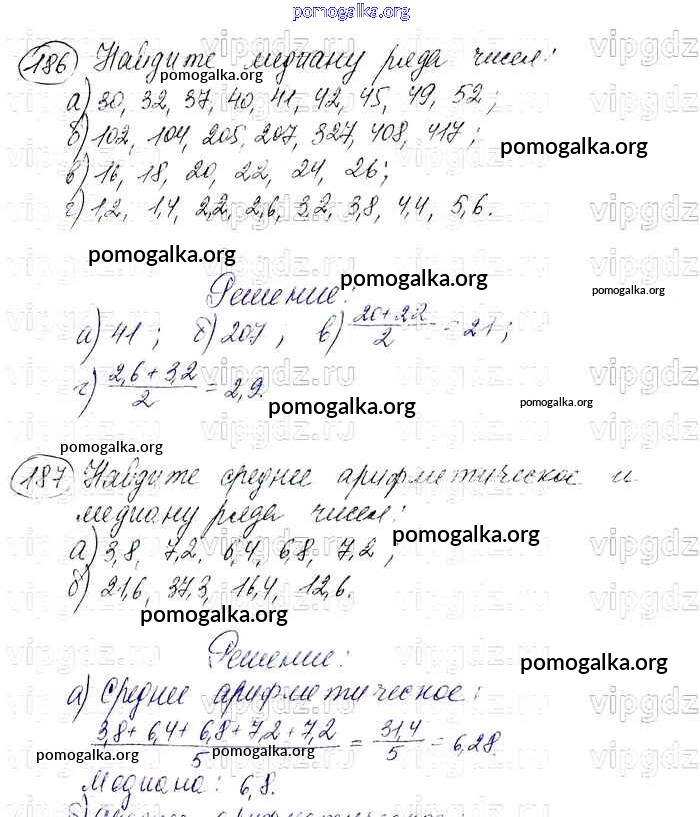 pomogalka.org
186 Найдите медиану ряда чисел:
pomogalka.org
а) 30, 32, 37, 40, 41, 42, 45, 49, 52;
б) 102, 104, 205, 207, 327, 408, 417;
pomogalka.org
в) 16, 18, 20, 22, 24, 26;
г) 1,2, 1,4, 2,2, 2,6, 3,2, 3,8, 4,4, 5,6.
vipgdz
pomogalka.org
pomogalka.org
pomogalka.org
Решение:
а) 41; б) 207; в) (20+22)/2 = 21;
г) (2,6+3,2)/2 = 2,9.
vipgdz.ru
pomogalka.org
pomogalka.org
pomogalka.org
187 Найдите среднее арифметическое и
медиану ряда чисел:
pomogalka.org
а) 3,8, 7,2, 6,4, 6,8, 7,2;
б) 21,6, 37,3, 16,4, 12,6.
pomogalka.org
Решение:
pomogalka.org
а) Среднее арифметическое:
(3,8+6,4+6,8+7,2+7,2)/5 = 31,4/5 = 6,28.
pomogalka.org
pomogalka.org
Медиана: 6,8.